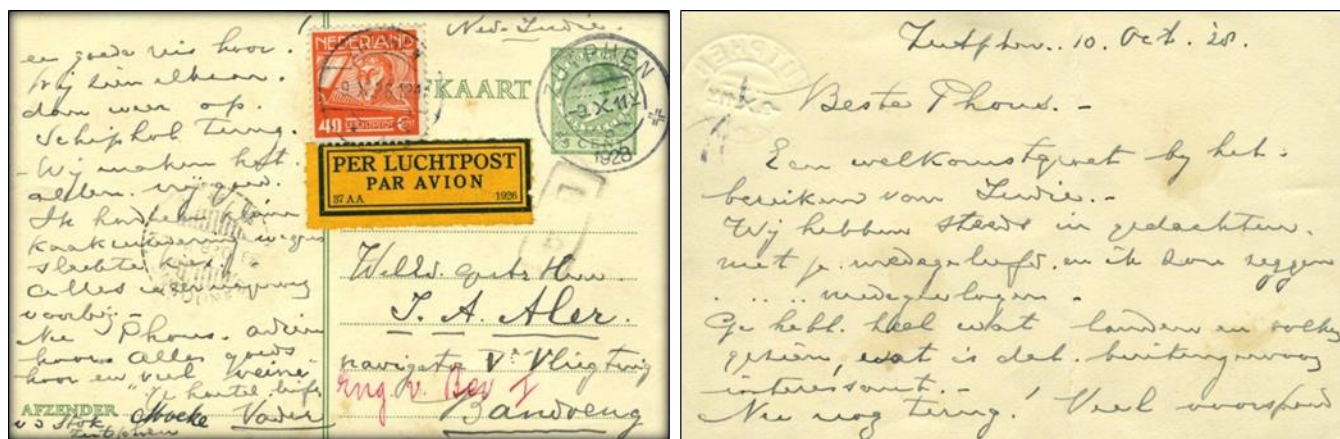 en goede reis hoor.
Wij zien elkaar
dan weer op
Schiphol terug.
- Wij maken het
allen vrij goed.
Ik had een kleine
wegens
slechte kies.
alles is
voorbij. -
Nu Phons. adieu
hoor. alles goeds
hoor en veel
AFZENDER Moeke Vader
Zutphen
Ned. Indie.
NEDERLAND
40
KAART
ZUTPHEN
9.X.11
1928
5 CENT
PER LUCHTPOST
PAR AVION
37 AA 1926
Weled. Heer
J. A. Aler.
navigator v. Vliegtuig
Bandoeng
Zutphen. 10. Oct. 28.
Beste Phons. -
Een welkomstgroet by het
bereiken van Indie. -
Wij hebben steeds in gedachten
met je medegeleefd. en ik zou zeggen
. . . . medegevlogen -
Ge hebt heel wat landen en volken
gezien, wat is dat buitengewoon
interessant. -
Nu nog terug! Veel voorspoed